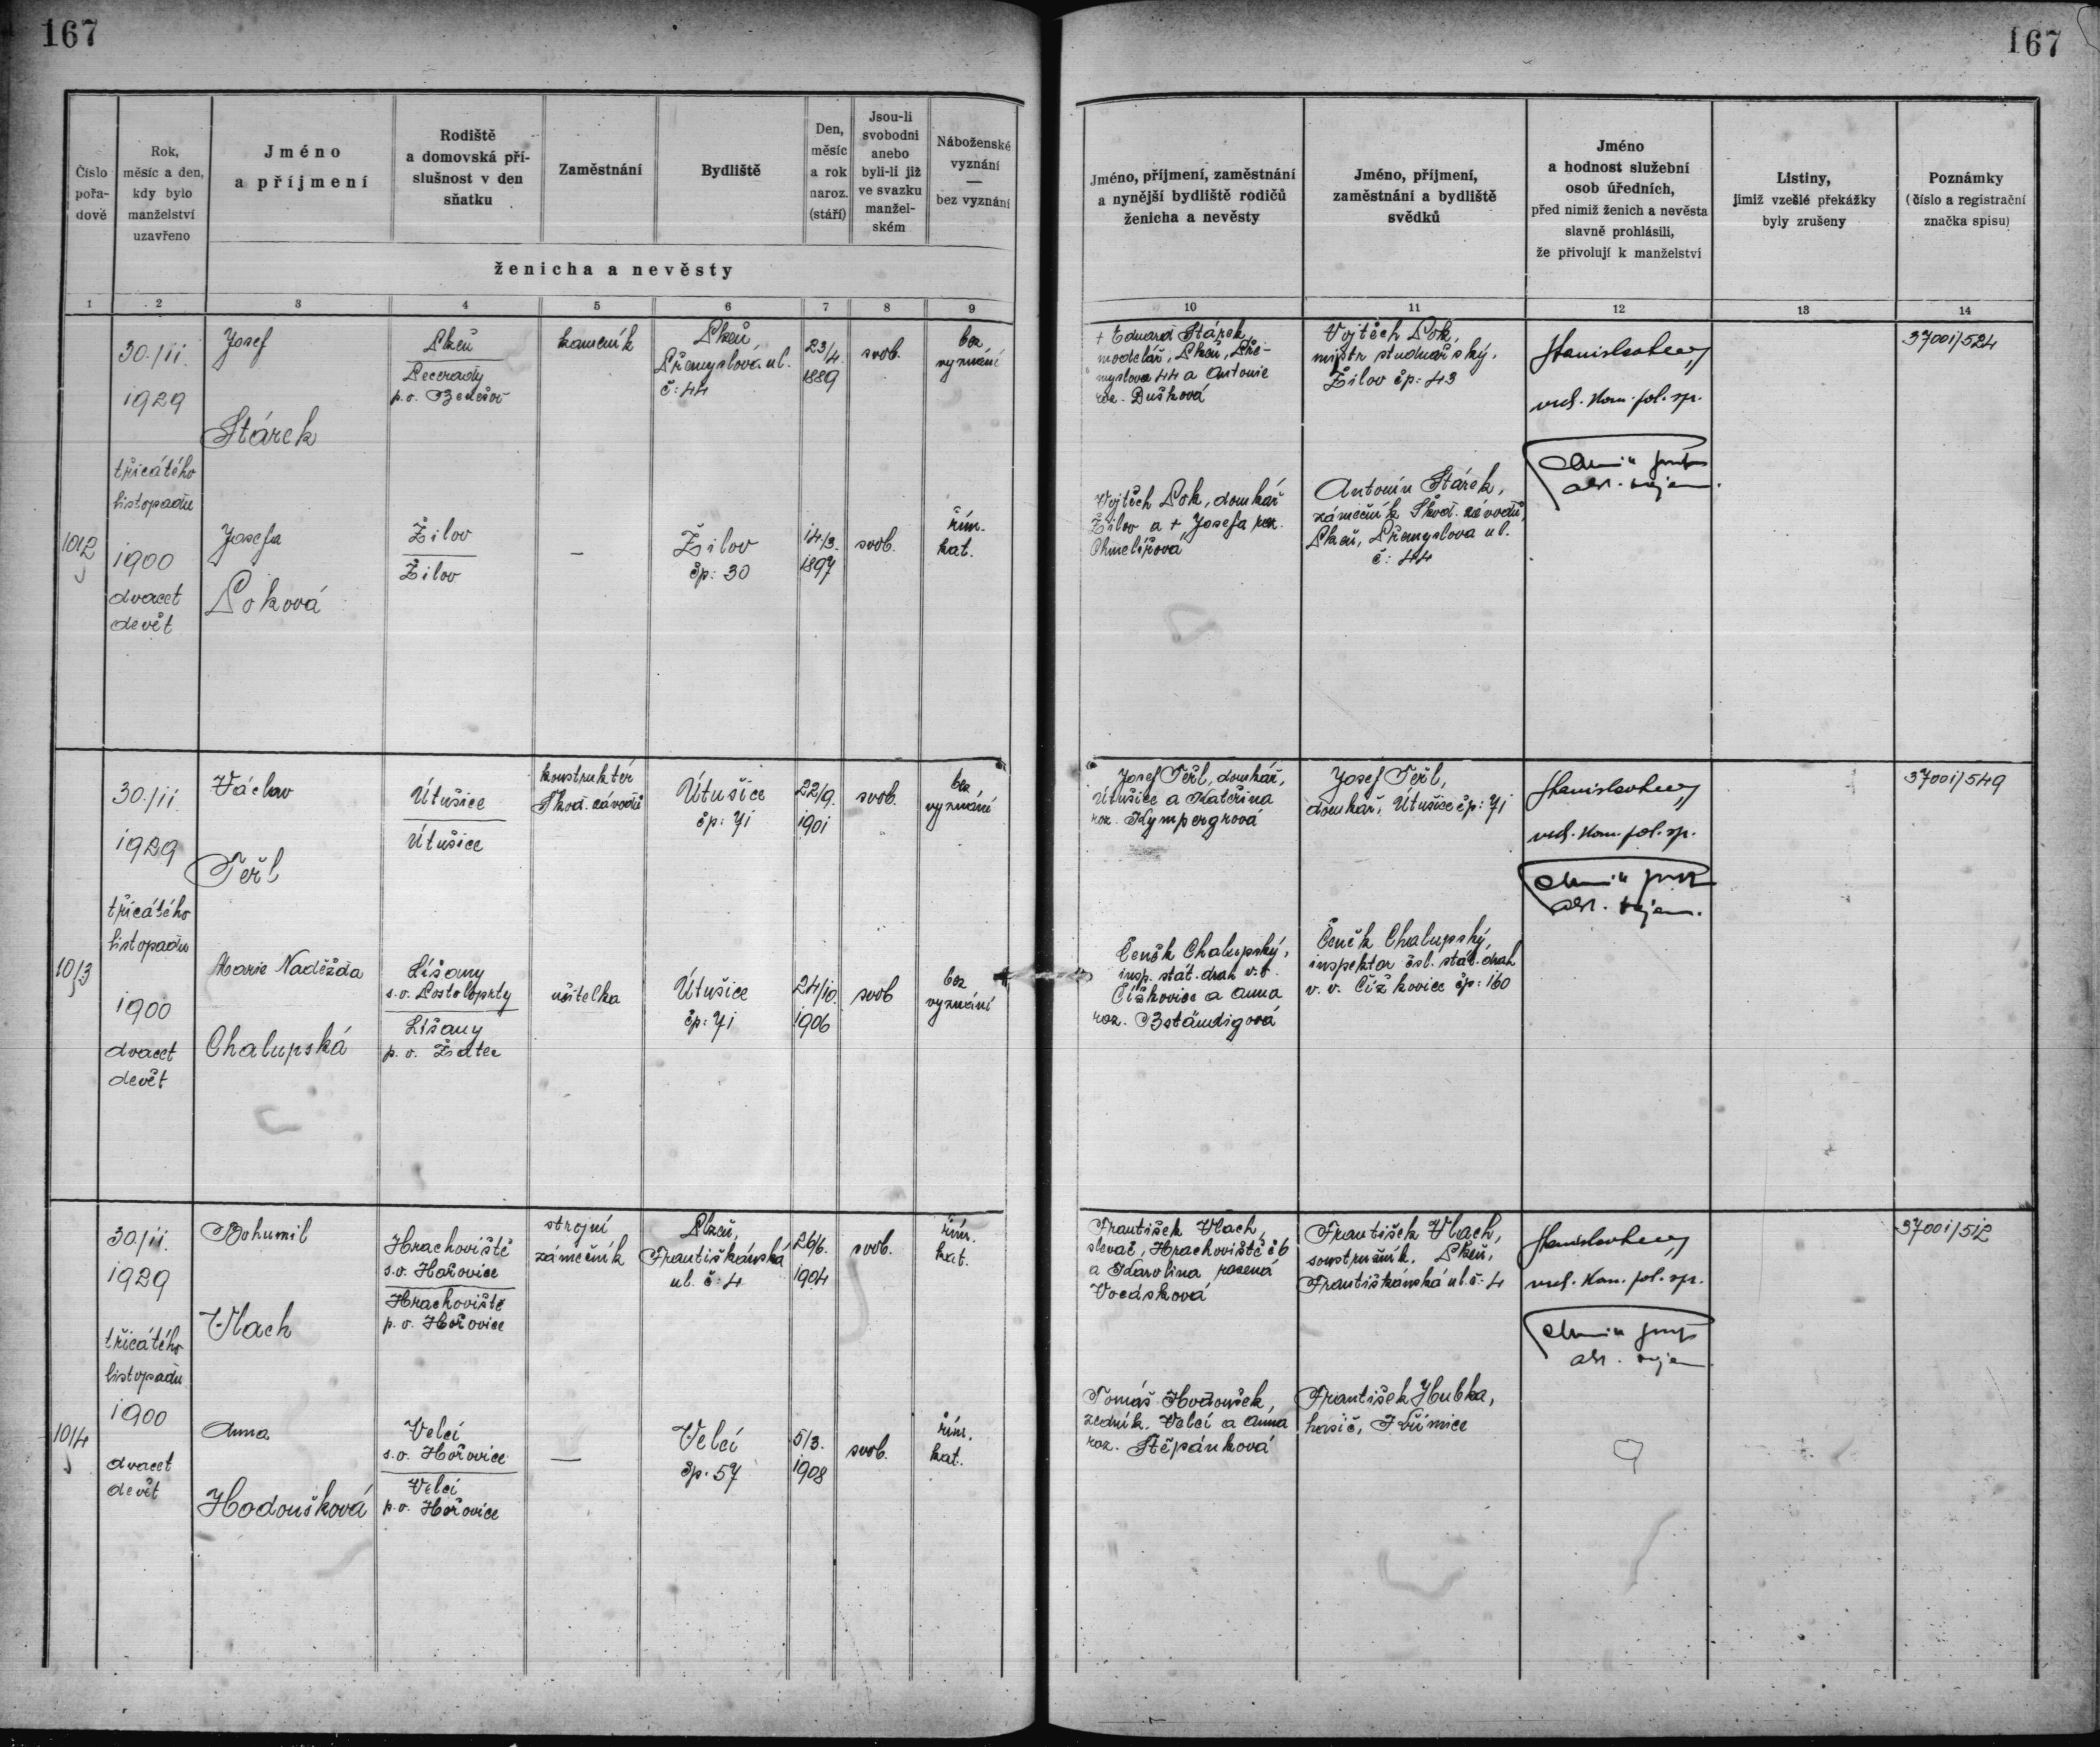 167
167
Číslo pořa-dové
Rok, měsíc a den, kdy bylo manželství uzavřeno
Jméno a příjmení
Rodiště a domovská pří-slušnost v den sňatku
Zaměstnání
Bydliště
Den, měsíc a rok naroz. (stáří)
Jsou-li svobodni anebo byli-li již ve svazku manžel-ském
Náboženské vyznání — bez vyznání
ženicha a nevěsty
Jméno, příjmení, zaměstnání a nynější bydliště rodičů ženicha a nevěsty
Jméno, příjmení, zaměstnání a bydliště svědků
Jméno a hodnost služební osob úředních, před nimiž ženich a nevěsta slavně prohlásili, že přivolují k manželství
Listiny, jimiž vzešlé překážky byly zrušeny
Poznámky (číslo a registrační značka spisu)
1 2 3 4 5 6 7 8 9 10 11 12 13 14
1012
30./11.
1929
třicátého
listopadu
1900
dvacet
devět
Josef
Stárek
Plzeň
Pecerady
p. o. Benešov
kameník
Plzeň
Přemyslova ul.
č: 44
23/4.
1889
svob.
bez
vyznání
+ Eduard Stárek,
modelář, Plzeň, Pře-
myslova 44 a Antonie
roz. Dušková
Vojtěch Pok,
mistr studnařský,
Žilov čp: 43
37001/524
Josefa
Poková
Žilov
Žilov
—
Žilov
čp: 30
14/3.
1897
svob.
řím.
kat.
Vojtěch Pok, domkář
Žilov a + Josefa roz.
Chmelířová
Antonín Stárek,
zámečník Škod. závodů,
Plzeň, Přemyslova ul.
č: 44
1013
30./11.
1929
třicátého
listopadu
1900
dvacet
devět
Václav
Teřl
Útušice
Útušice
konstruktér
Škod. závodů
Útušice
čp: 71
22/9.
1901
svob.
bez
vyznání
Josef Teřl, domkář,
Útušice a Kateřina
roz. Kympergrová
Josef Teřl,
domkář, Útušice čp: 71
37001/549
Marie Naděžda
Chalupská
Líšany
s. o. Postoloprty
Líšany
p. o. Žatec
učitelka
Útušice
čp: 71
24/10.
1906
svob
bez
vyznání
Čeněk Chalupský,
insp. stát. drah v. v.
Čížkovice a Anna
roz. Bständigová
Čeněk Chalupský,
inspektor čsl. stát. drah
v. v. Čížkovice čp: 160
1014
30./11.
1929
třicátého
listopadu
1900
dvacet
devět
Bohumil
Vlach
Hrachoviště
s. o. Hořovice
Hrachoviště
p. o. Hořovice
strojní
zámečník
Plzeň,
Františkánská
ul. č: 4
26/6.
1904
svob.
řím.
kat.
František Vlach,
slevač, Hrachoviště č 6
a Karolina rozená
Vocásková
František Vlach,
soustružník, Plzeň,
Františkánská ul. č: 4
37001/512
Anna
Hodoušková
Velcí
s. o. Hořovice
Velcí
p. o. Hořovice
—
Velcí
čp. 57
5/3.
1908
svob.
řím.
kat.
Tomáš Hodoušek,
zedník, Velcí a Anna
roz. Štěpánková
František Hubka,
hasič, Křimice